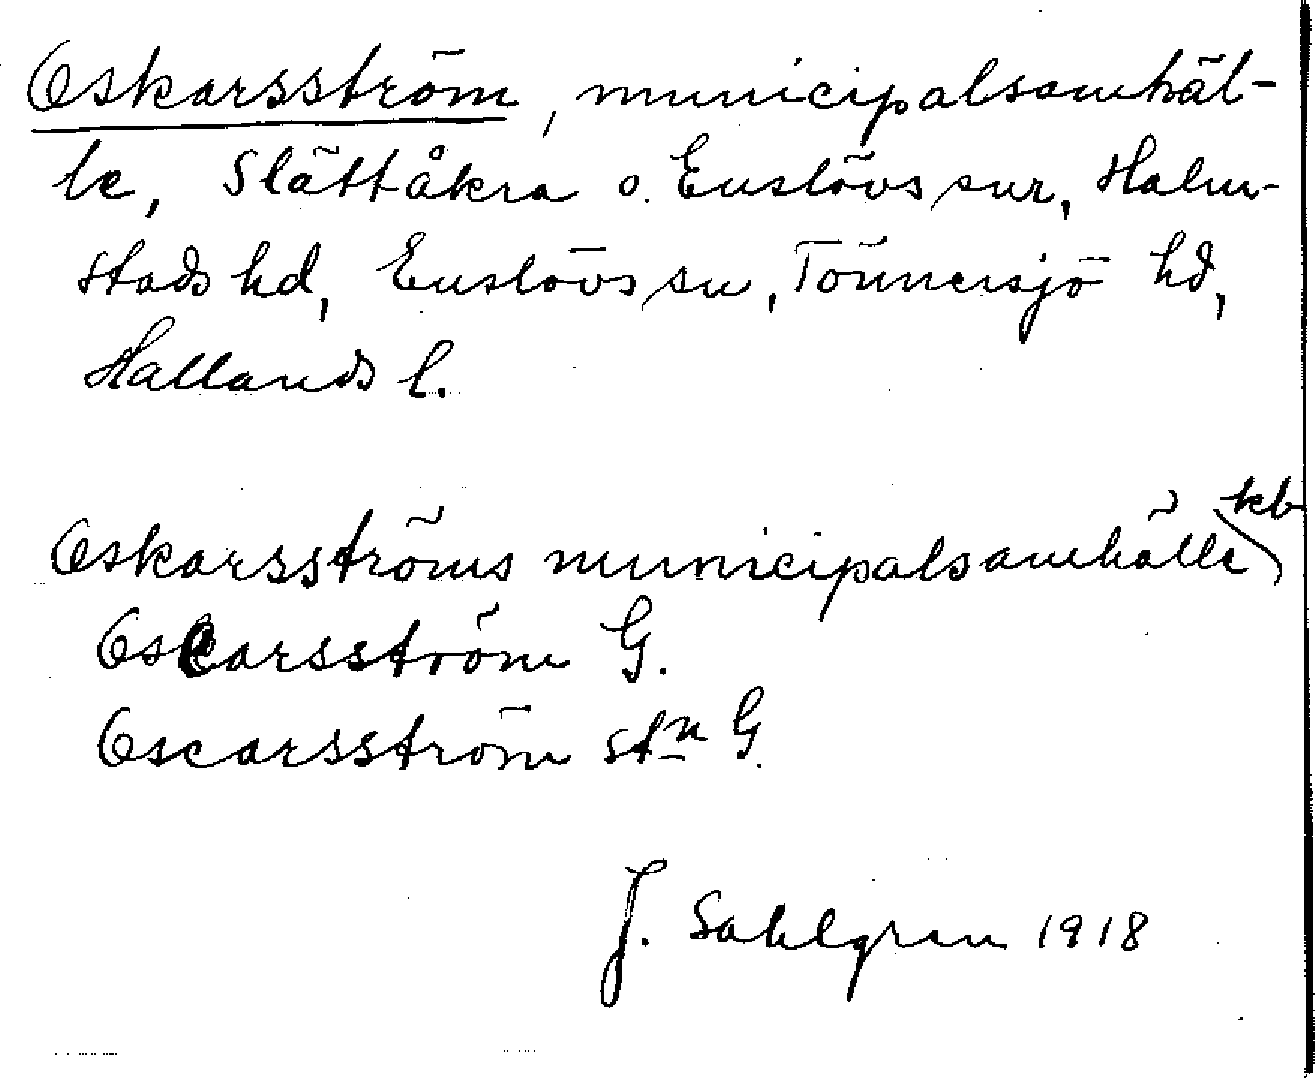 Oskarsström, municipalsamhäl-
le, Slättåkra o. Enslövs snr, Halm-
stads hd, Enslövs sn, Tönnersjö hd,
Hallands l.
Oskarsströms municipalsamhälle kb
Oscarsström G.
Oscarsström stn G.
J. Sahlgren 1918